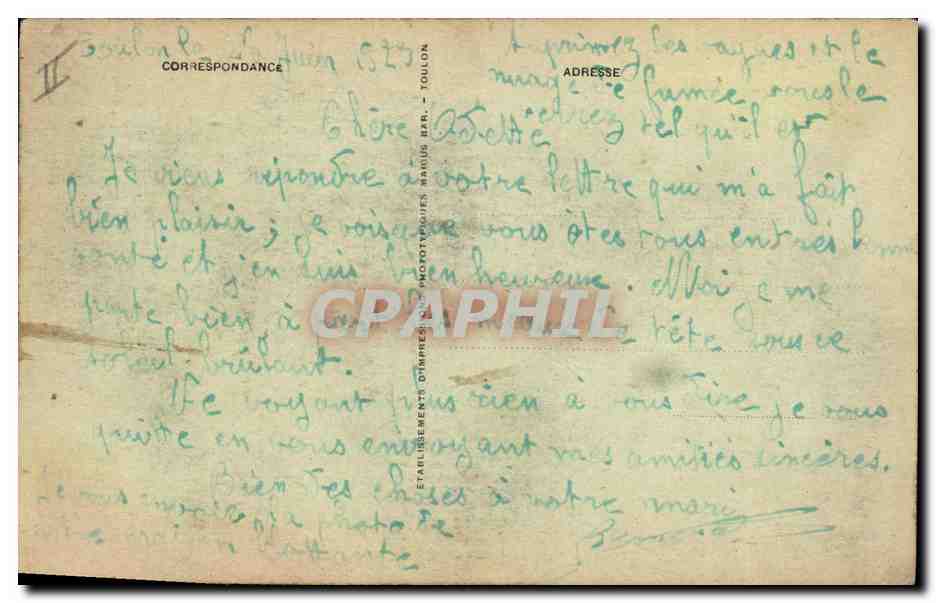 II
Toulon le Juin 1923
CORRESPONDANCE
ADRESSE
Supprimez les vagues et le
nuage de fumée vous le
verrez tel qu'il est
Chère Odette
Je viens répondre à votre lettre qui m'a fait
bien plaisir; je vois que vous êtes tous en très bonne
santé et j'en suis bien heureuse. Moi je me
porte bien à part de tête sous ce
soleil brûlant.
Ne voyant plus rien à vous dire je vous
quitte en vous envoyant mes amitiés sincères.
Bien des choses à votre mari
Je vous envoie la photo de
ETABLISSEMENTS D'IMPRESSIONS PHOTOTYPIQUES MARIUS BAR. - TOULON
CPAPHIL